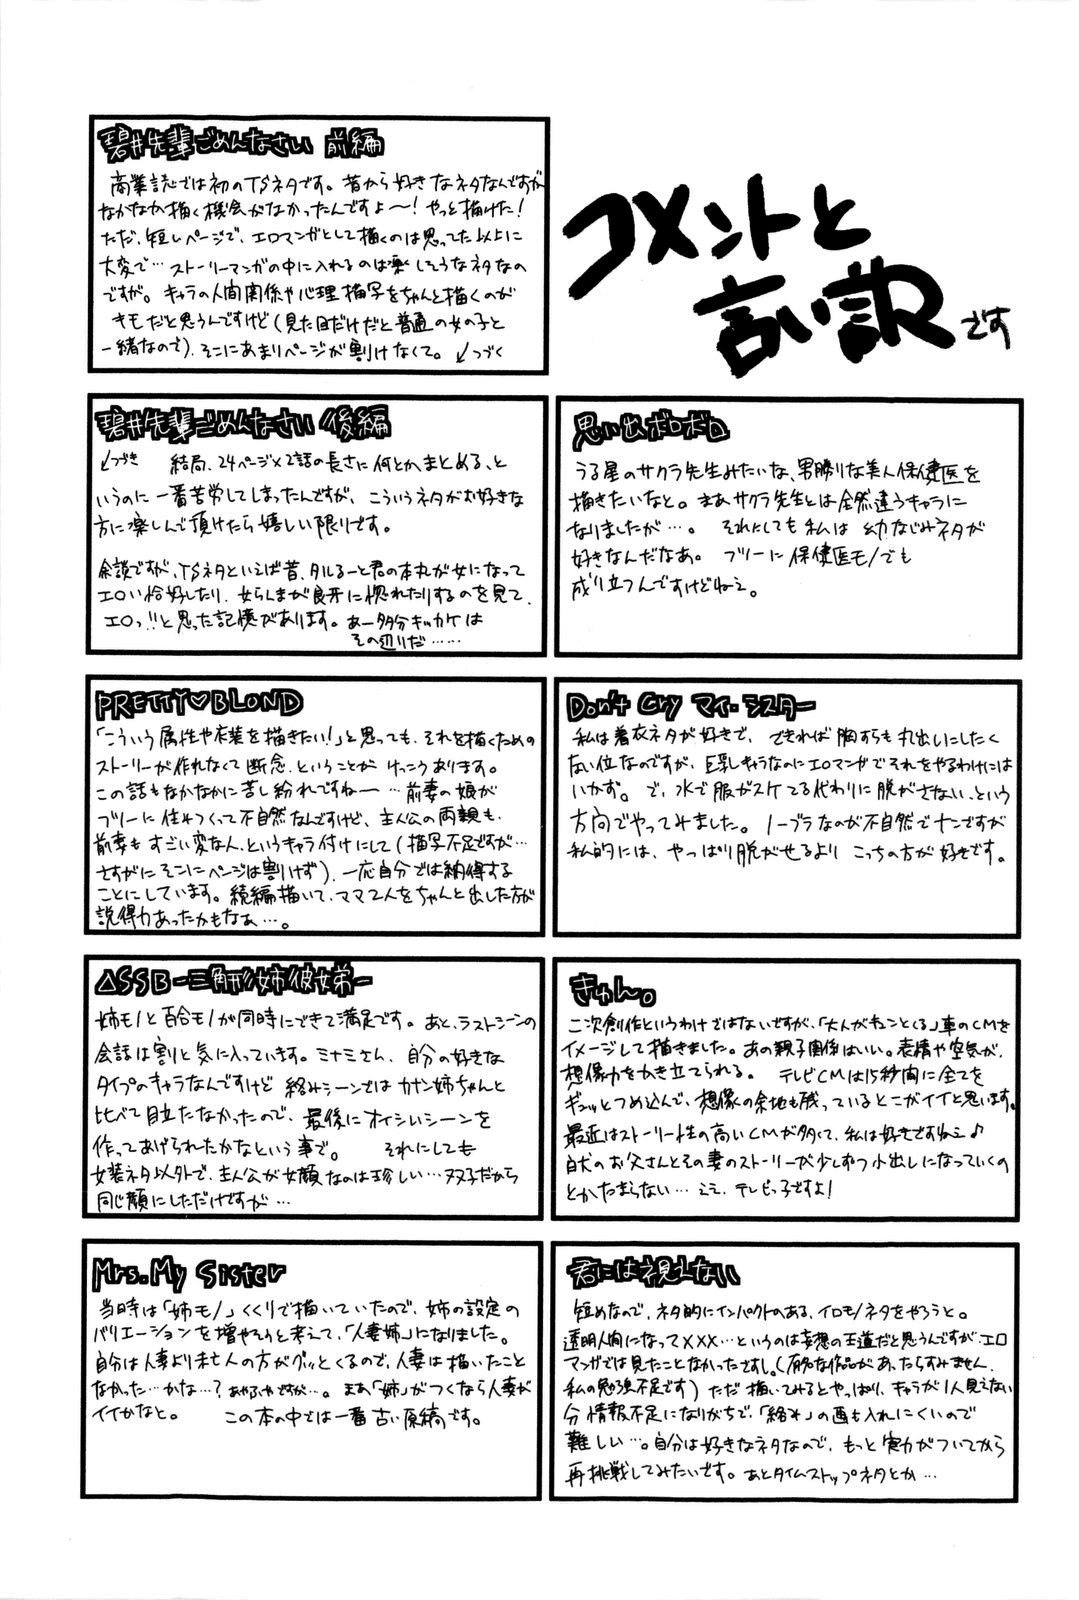 コメントと
言い訳です
碧井先輩ごめんなさい 前編
商業誌では初のTSネタです。昔から好きなネタなんですが
なかなか描く機会がなかったんですよ〜!やっと描けた!
ただ、短いページで、エロマンガとして描くのは思ってた以上に
大変で…ストーリーマンガの中に入れるのは楽しそうなネタなの
ですが。キャラの人間関係や心理描写をちゃんと描くのが
キモだと思うんですけど(見た目だけだと普通の女の子と
一緒なので)、そこにあまりページが割けなくて。↙つづく
碧井先輩ごめんなさい 後編
↙つづき 結局、24ページ×2話の長さに何とかまとめる、と
いうのに一番苦労してしまったんですが、こういうネタがお好きな
方に楽しんで頂けたら嬉しい限りです。
余談ですが、TSネタといえば昔、タルるート君の本丸が女になって
エロい恰好したり、女らんまが良牙に惚れたりするのを見て、
エロっ!!と思った記憶があります。あー多分キッカケは
その辺りだ……
思い出ボロボロ
うる星のサクラ先生みたいな、男勝りな美人保健医を
描きたいなと。まあサクラ先生とは全然違うキャラに
なりましたが…。それにしても私は幼なじみネタが
好きなんだなあ。フツーに保健医モノでも
成り立つんですけどねえ。
PRETTY♡BLOND
「こういう属性や衣装を描きたい!」と思っても、それを描くための
ストーリーが作れなくて断念、ということがけっこうあります。
この話もなかなかに苦し紛れですね〜…前妻の娘が
フツーに住みつくって不自然なんですけど、主人公の両親も、
前妻もすごい変な人、というキャラ付けにして(描写不足ですが…
さすがにそこにページは割けず)、一応自分では納得する
ことにしています。続編描いて、ママ2人をちゃんと出した方が
説得力あったかもなぁ…。
Don't Cry マイ・シスター
私は着衣ネタが好きで、できれば胸すらも丸出しにしたく
ない位なのですが、巨乳キャラなのにエロマンガでそれをやるわけには
いかず。で、水で服がスケてる代わりに脱がさない、という
方向でやってみました。ノーブラなのが不自然でナンですが
私的には、やっぱり脱がせるよりこっちの方が好きです。
△SSB-三角形姉彼弟-
姉モノと百合モノが同時にできて満足です。あと、ラストシーンの
会話は割と気に入っています。ミナミさん、自分の好きな
タイプのキャラなんですけど絡みシーンではカナン姉ちゃんと
比べて目立たなかったので、最後にオイシいシーンを
作ってあげられたかなという事で。それにしても
女装ネタ以外で、主人公が女顔なのは珍しい…双子だから
同じ顔にしただけですが…
きゅん。
二次創作というわけではないですが、「大人がキュンとくる」車のCMを
イメージして描きました。あの親子関係はいい。表情や空気が、
想像力をかき立てられる。テレビCMは15秒間に全てを
ギュッとつめ込んで、想像の余地も残っているとこがイイと思います。
最近はストーリー性の高いCMが多くて、私は好きですねえ♪
白犬のお父さんとその妻のストーリーが少しずつ小出しになっていくの
とかたまらない…ええ、テレビっ子ですよ!
Mrs. My Sister
当時は「姉モノ」くくりで描いていたので、姉の設定の
バリエーションを増やそうと考えて、「人妻姉」になりました。
自分は人妻より未亡人の方がグッとくるので、人妻は描いたこと
なかった…かな…?あやふやですが…。まあ「姉」がつくなら人妻が
イイかなと。この本の中では一番古い原稿です。
君には視えない
短めなので、ネタ的にインパクトのある、イロモノネタをやろうと。
透明人間になって×××…というのは妄想の王道だと思うんですが、エロ
マンガでは見たことなかったですし。(有名な作品があったらすみません、
私の勉強不足です)ただ描いてみるとやっぱり、キャラが1人見えない
分情報不足になりがちで、「絡み」の画も入れにくいので
難しい…。自分は好きなネタなので、もっと実力がついてから
再挑戦してみたいです。あとタイムストップネタとか…